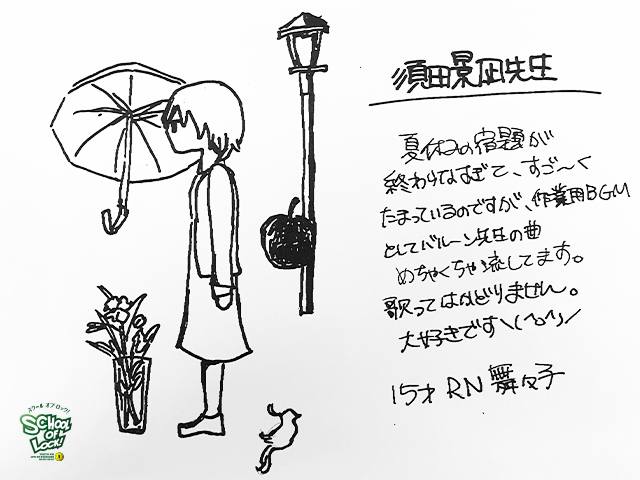 須田景凪先生
夏休みの宿題が
終わらなすぎて、すご〜く
たまっているのですが、作業用BGM
としてバルーン先生の曲
めちゃくちゃ流してます。
歌ってはかどりません。
大好きです\(^o^)/
15才 RN 舞々子
スクール オブ ロック!
SCHOOL
OF
LOCK!